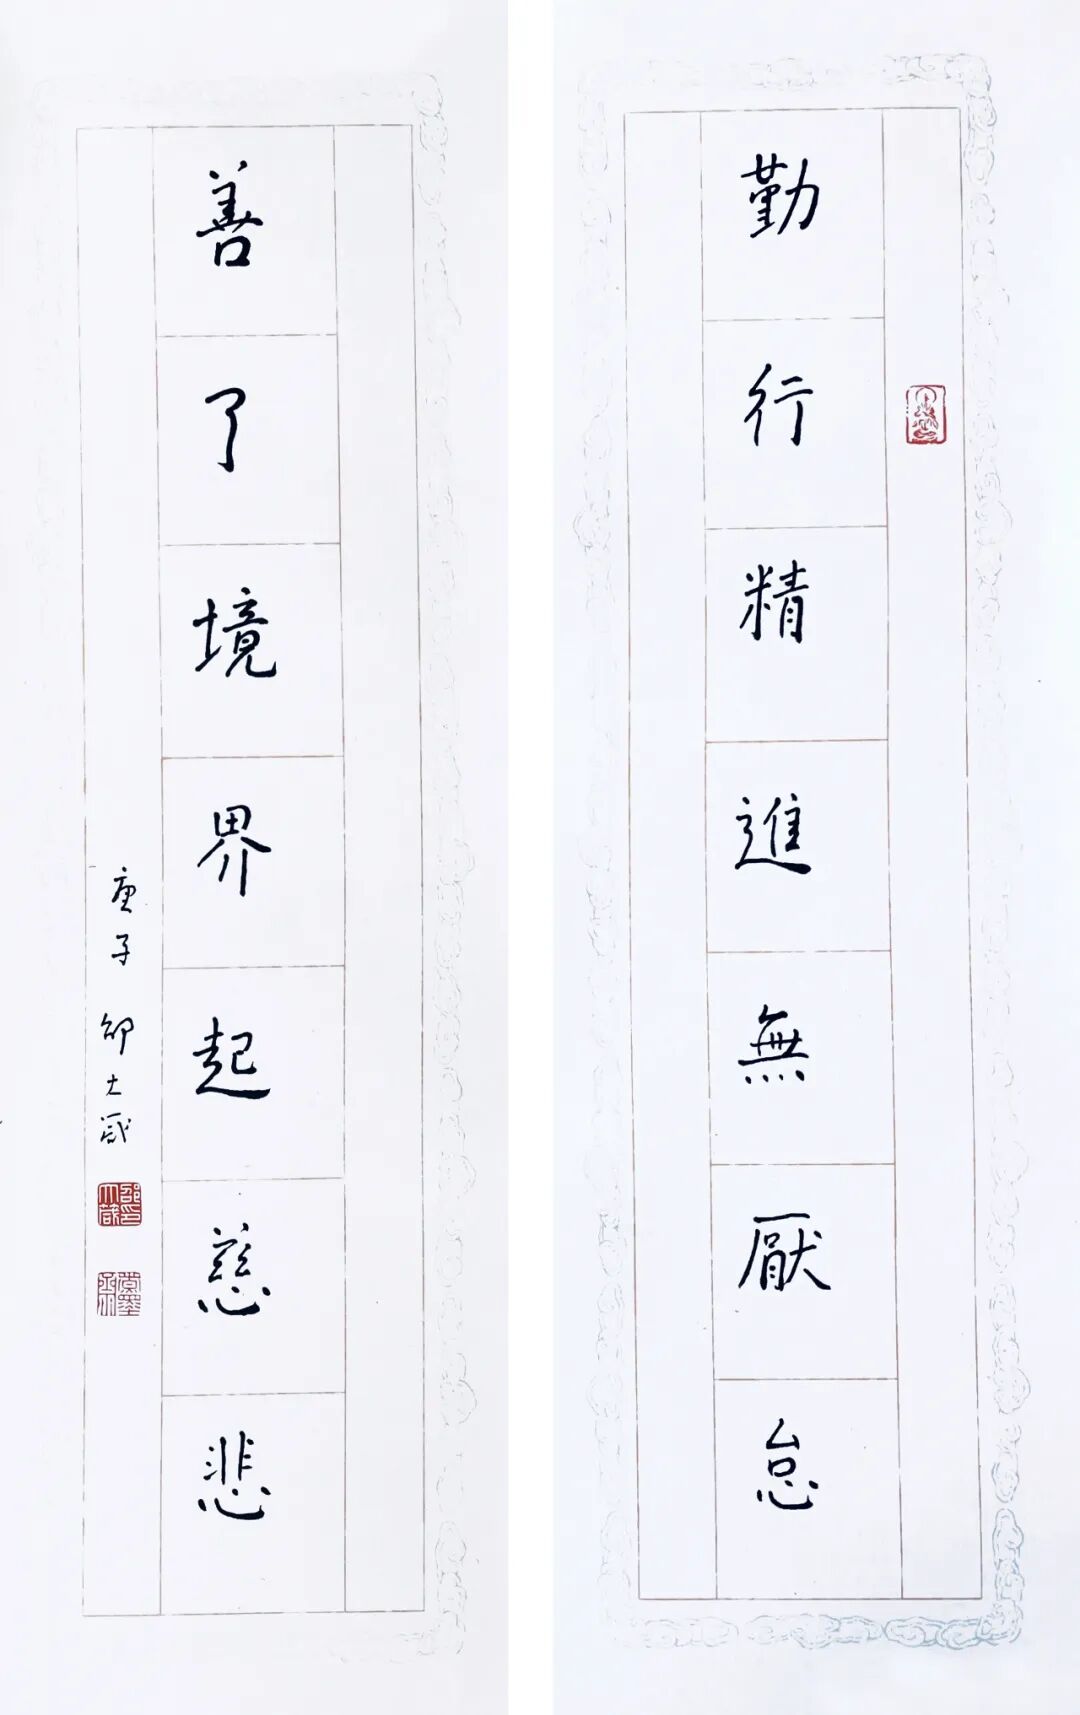 勤行精進無厭怠
善了境界起慈悲
庚子 邰大箴